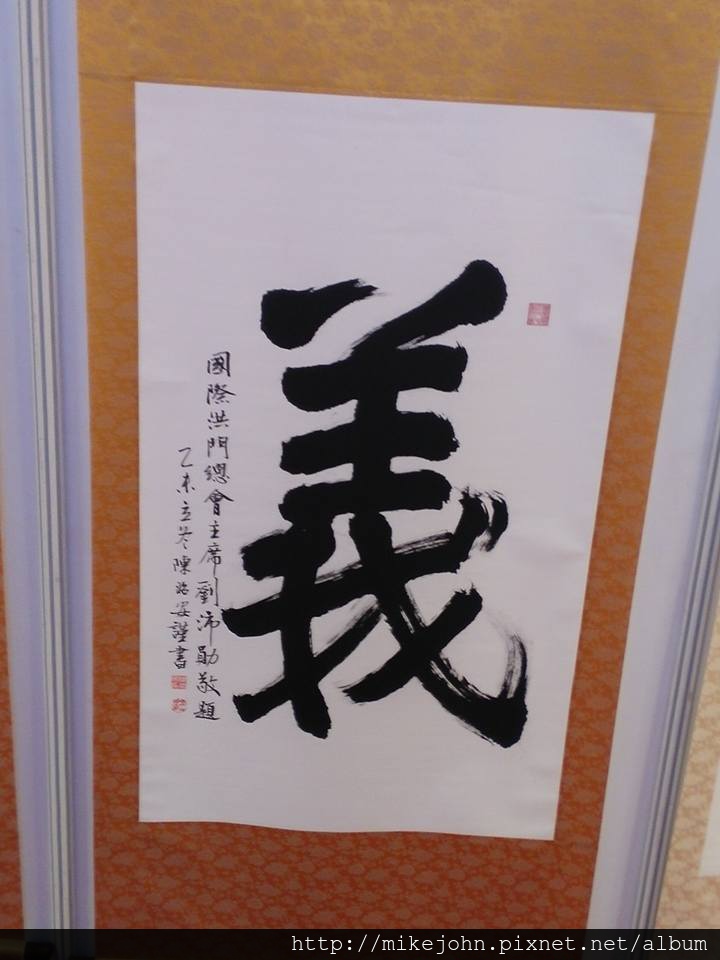 義
國際洪門總會主席劉沛勛敬題
乙未立冬陳兆安謹書
http://mikejohn.pixnet.net/album